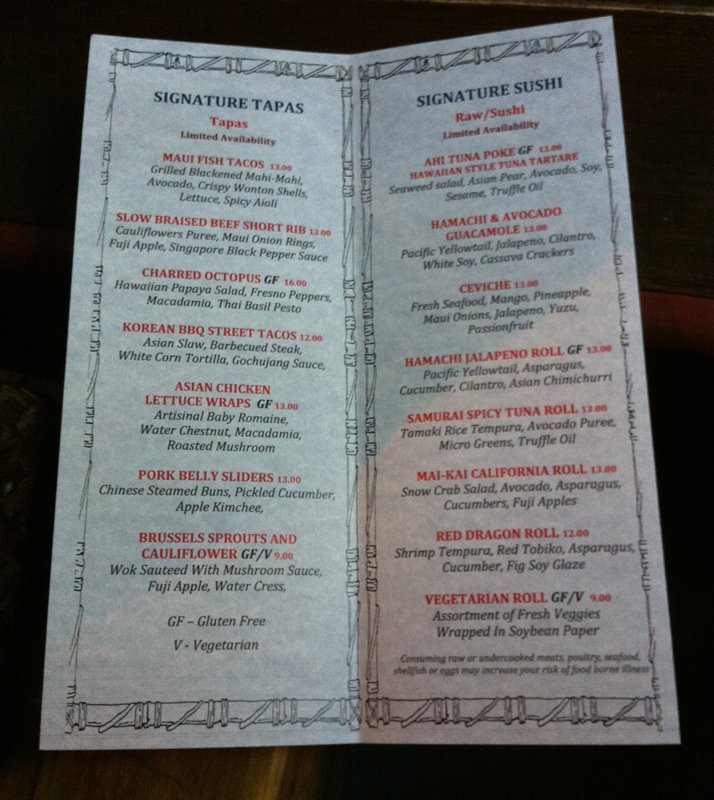 SIGNATURE TAPAS
Tapas
Limited Availability
MAUI FISH TACOS 13.00
Grilled Blackened Mahi-Mahi,
Avocado, Crispy Wonton Shells,
Lettuce, Spicy Aioli
SLOW BRAISED BEEF SHORT RIB 13.00
Cauliflowers Puree, Maui Onion Rings,
Fuji Apple, Singapore Black Pepper Sauce
CHARRED OCTOPUS GF 16.00
Hawaiian Papaya Salad, Fresno Peppers,
Macadamia, Thai Basil Pesto
KOREAN BBQ STREET TACOS 12.00
Asian Slaw, Barbecued Steak,
White Corn Tortilla, Gochujang Sauce,
ASIAN CHICKEN
LETTUCE WRAPS GF 13.00
Artisinal Baby Romaine,
Water Chestnut, Macadamia,
Roasted Mushroom
PORK BELLY SLIDERS 13.00
Chinese Steamed Buns, Pickled Cucumber,
Apple Kimchee,
BRUSSELS SPROUTS AND
CAULIFLOWER GF/V 9.00
Wok Sauteed With Mushroom Sauce,
Fuji Apple, Water Cress,
GF – Gluten Free
V - Vegetarian
SIGNATURE SUSHI
Raw/Sushi
Limited Availability
AHI TUNA POKE GF 13.00
HAWAIIAN STYLE TUNA TARTARE
Seaweed salad, Asian Pear, Avocado, Soy,
Sesame, Truffle Oil
HAMACHI & AVOCADO
GUACAMOLE 13.00
Pacific Yellowtail, Jalapeno, Cilantro,
White Soy, Cassava Crackers
CEVICHE 13.00
Fresh Seafood, Mango, Pineapple,
Maui Onions, Jalapeno, Yuzu,
Passionfruit
HAMACHI JALAPENO ROLL GF 13.00
Pacific Yellowtail, Asparagus,
Cucumber, Cilantro, Asian Chimichurri
SAMURAI SPICY TUNA ROLL 13.00
Tamaki Rice Tempura, Avocado Puree,
Micro Greens, Truffle Oil
MAI-KAI CALIFORNIA ROLL 13.00
Snow Crab Salad, Avocado, Asparagus,
Cucumbers, Fuji Apples
RED DRAGON ROLL 12.00
Shrimp Tempura, Red Tobiko, Asparagus,
Cucumber, Fig Soy Glaze
VEGETARIAN ROLL GF/V 9.00
Assortment of Fresh Veggies
Wrapped In Soybean Paper
Consuming raw or undercooked meats, poultry, seafood,
shellfish or eggs may increase your risk of food borne illness